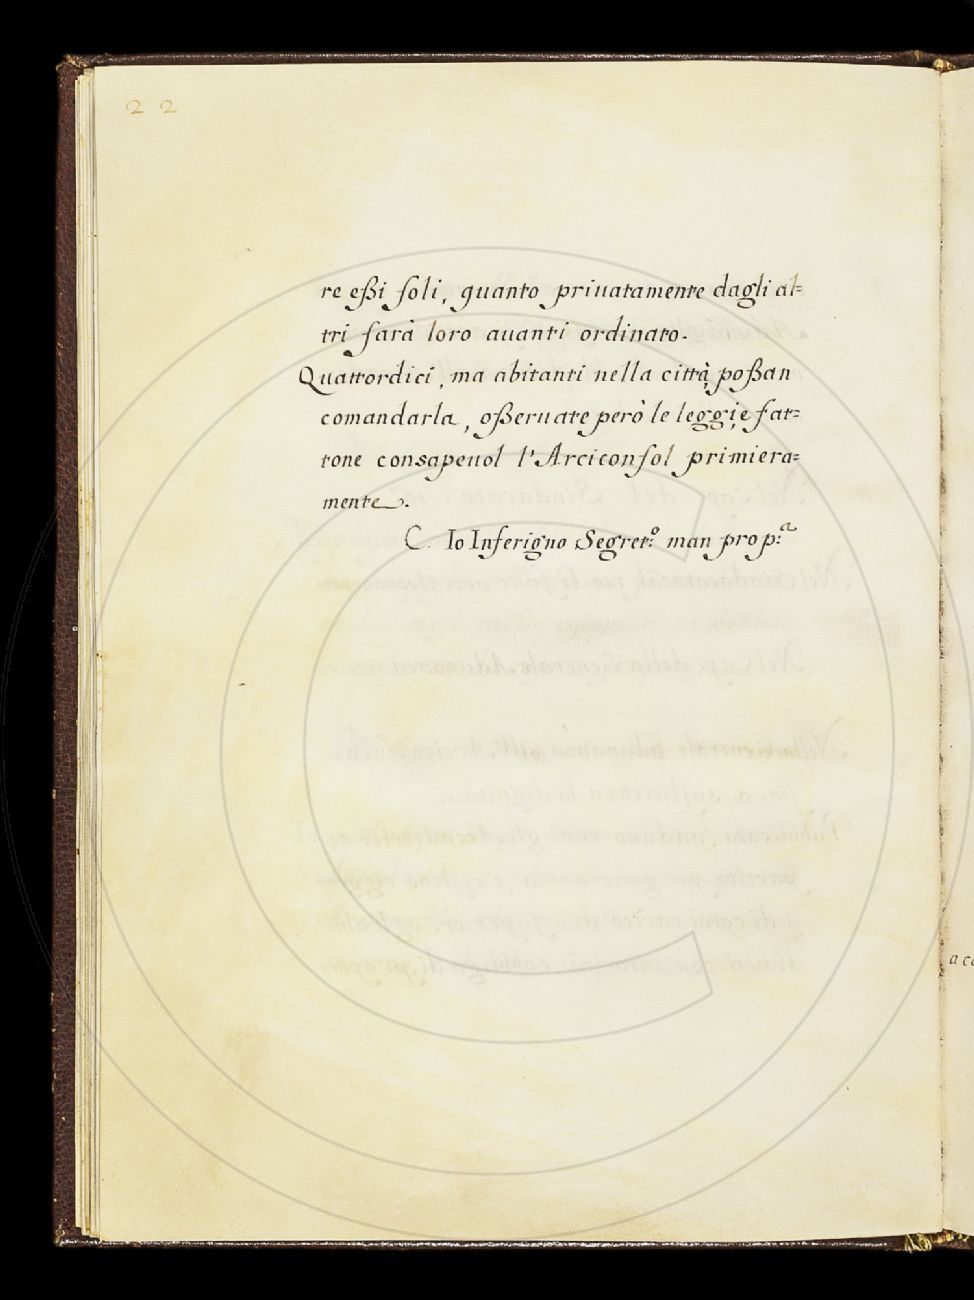 22
re eßi ſoli, quanto priuatamente dagli al=
tri ſarà loro auanti ordinato.
Quattordici, ma abitanti nella città poßan
comandarla, oßeruate però le leggi, e fat=
tone consapeuol l'Arciconſol primiera=
mente.
C. Io Inferigno Segret.º man prop.ª